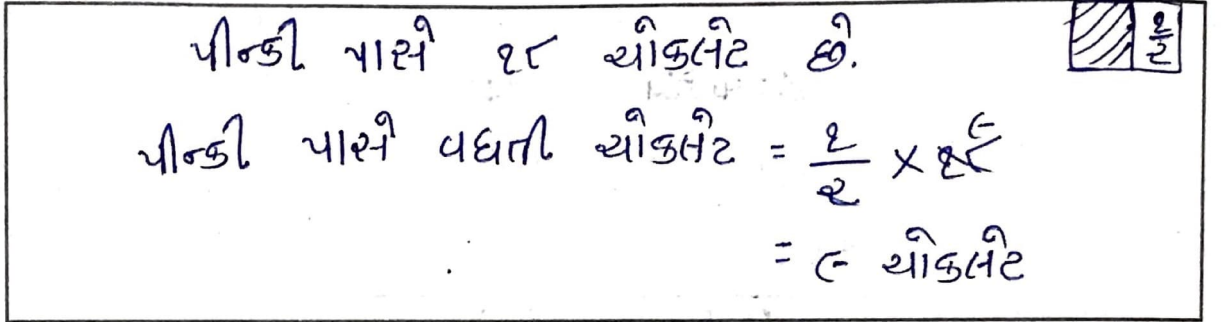 પીન્કી પાસે ૧૮ ચોકલેટ છે.
૧/૨
પીન્કી પાસે વધતી ચોકલેટ = ૧/૨ × ૧૮ ૯
= ૯ ચોકલેટ